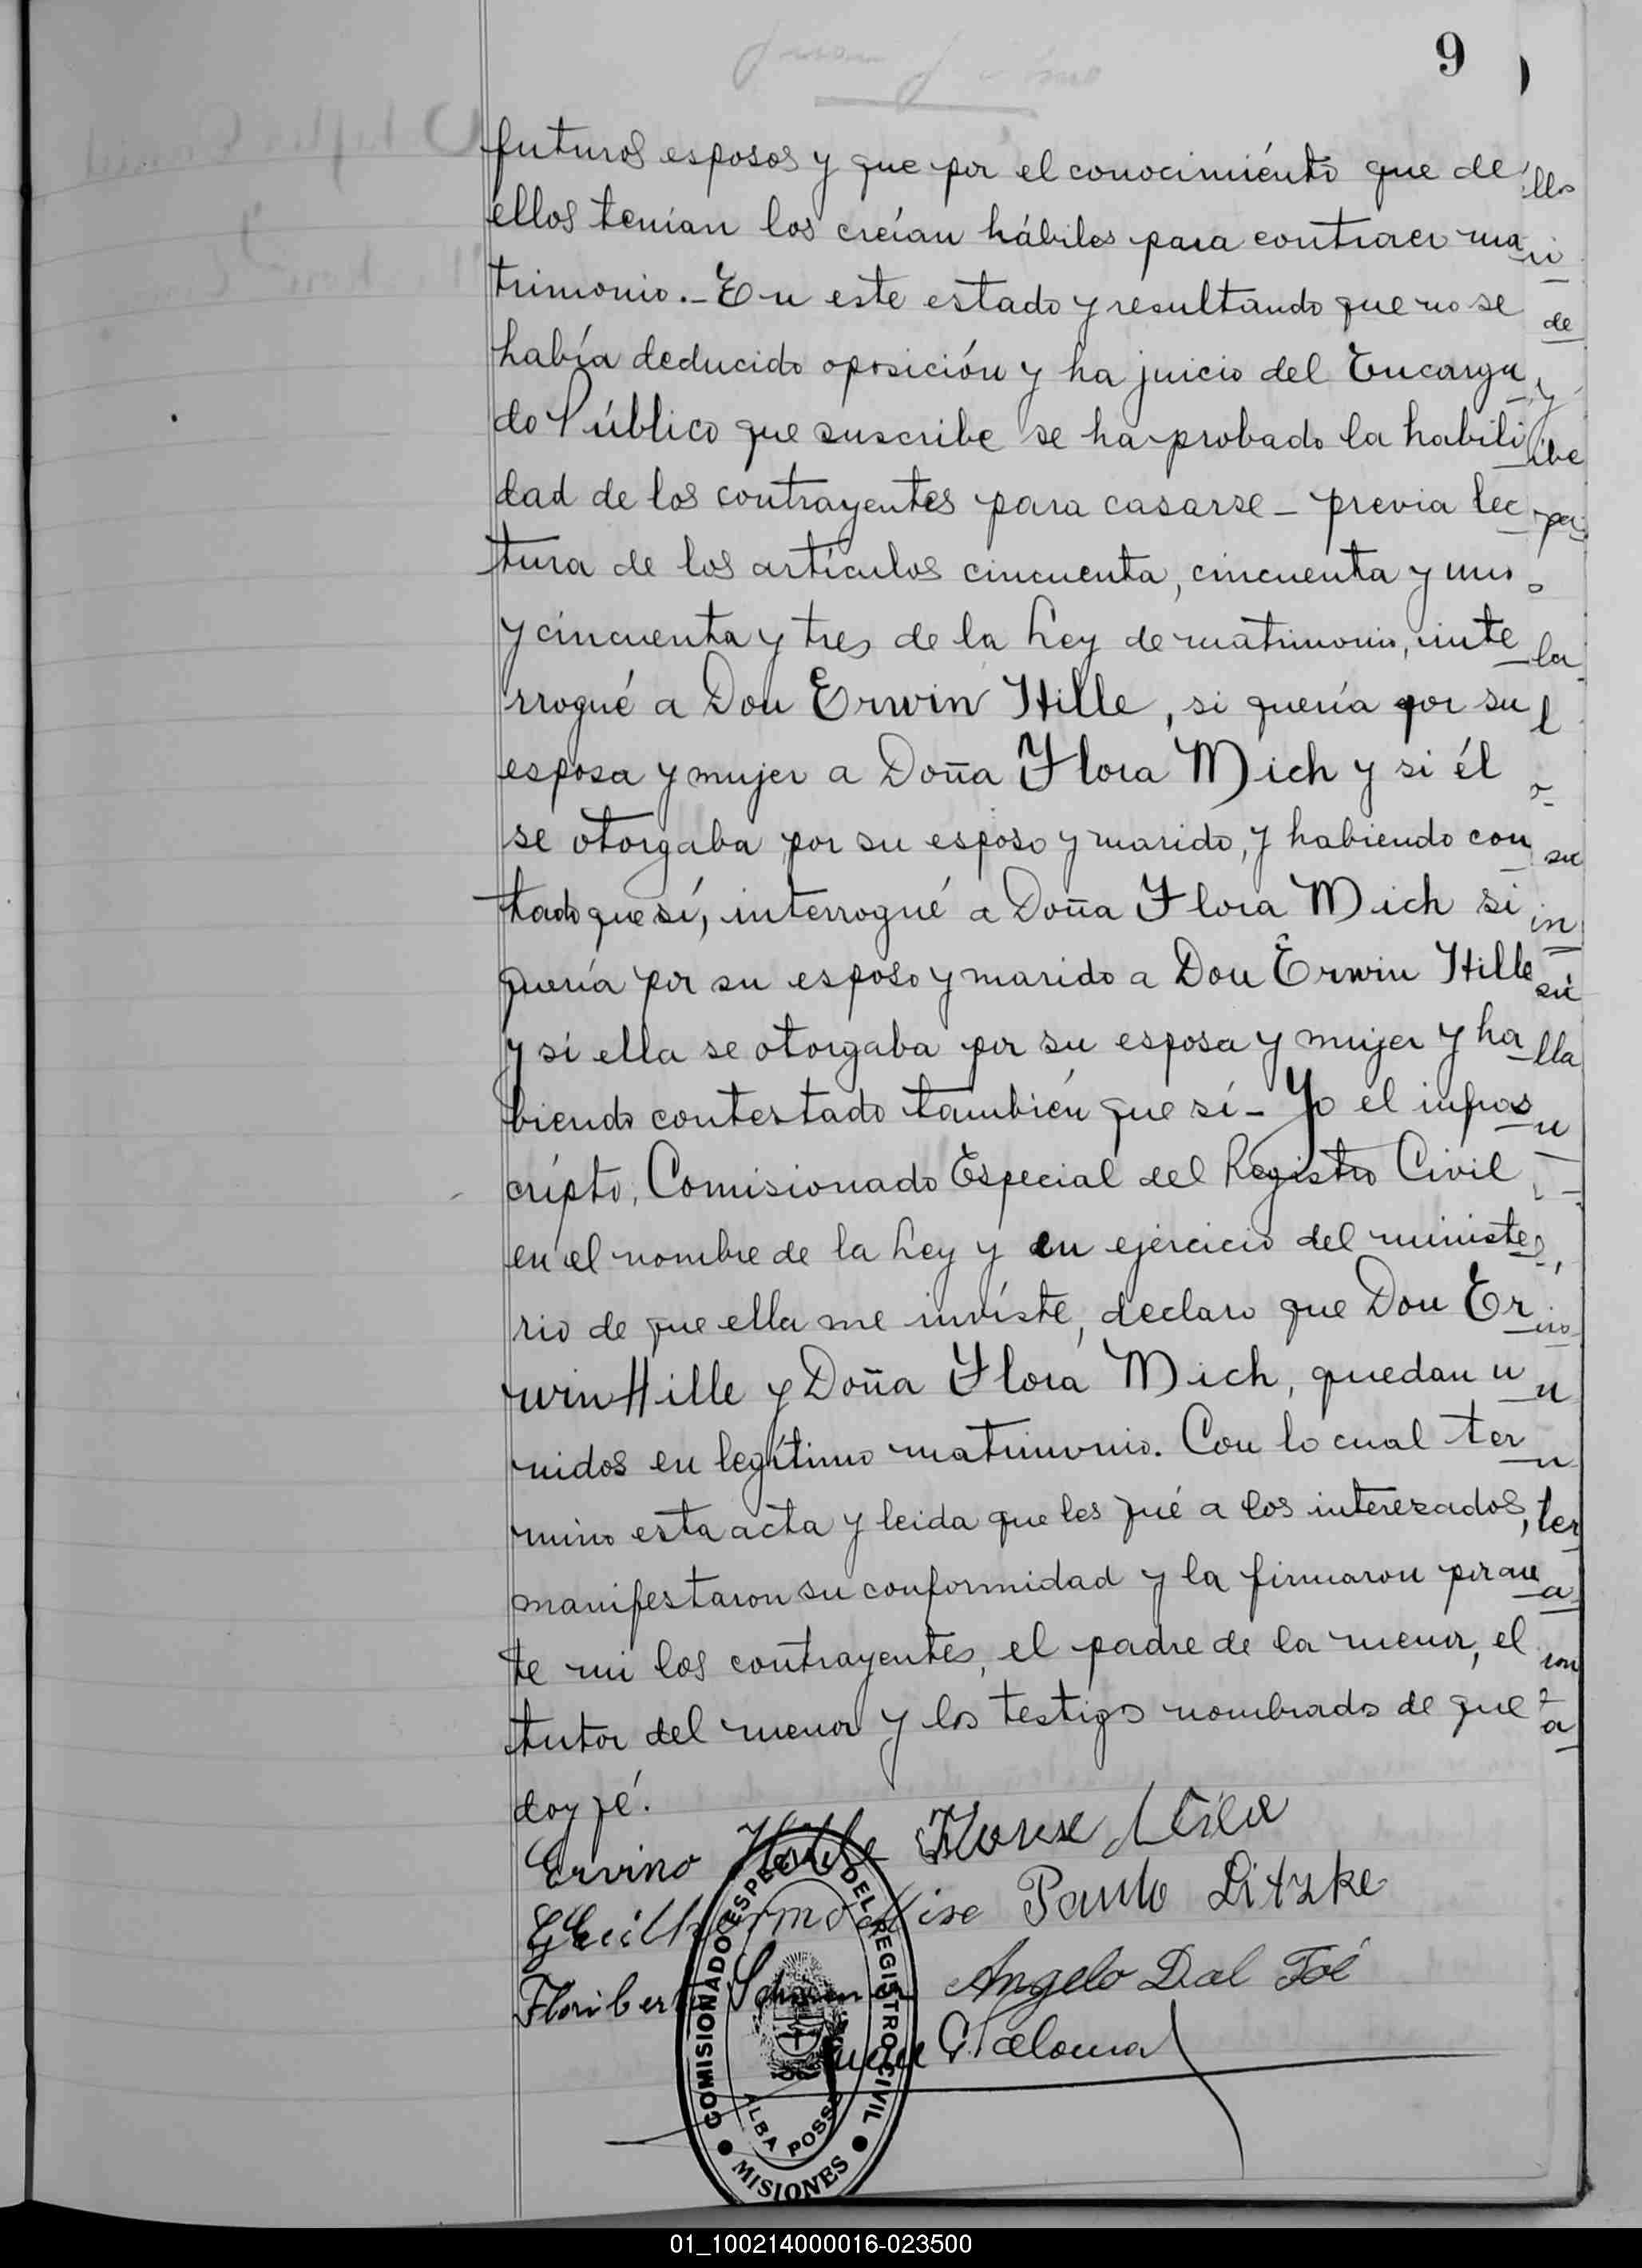 9
futuros esposos y que por el conocimiento que de
ellos tenían los creían hábiles para contraer ma
trimonio.- En este estado y resultando que no se
había deducido oposición y ha juicio del Encarga
do Público que suscribe se ha probado la habili
dad de los contrayentes para casarse - previa lec
tura de los artículos cincuenta, cincuenta y uno
y cincuenta y tres de la Ley de matrimonio, inte
rrogué a Don Erwin Hille, si quería por su
esposa y mujer a Doña Flora Mich y si él
se otorgaba por su esposo y marido, y habiendo con
tado que sí, interrogué a Doña Flora Mich si
quería por su esposo y marido a Don Erwin Hille
y si ella se otorgaba por su esposa y mujer y ha
biendo contestado también que sí - Yo el infras
cripto, Comisionado Especial del Registro Civil
en el nombre de la Ley y en ejercicio del ministe
rio de que ella me inviste, declaro que Don Er
win Hille y Doña Flora Mich, quedan u
nidos en legítimo matrimonio. Con lo cual ter
mino esta acta y leida que les fué a los interezados,
manifestaron su conformidad y la firmaron por an
te mi los contrayentes, el padre de la menor, el
tutor del menor y los testigos nombrados de que
doy fé.
Ervino Hille
Paulo Ditzke
Angelo Dal Foé
COMISIONADO ESPECIAL DEL REGISTRO CIVIL
ALBA POSSE
MISIONES
01_100214000016-023500